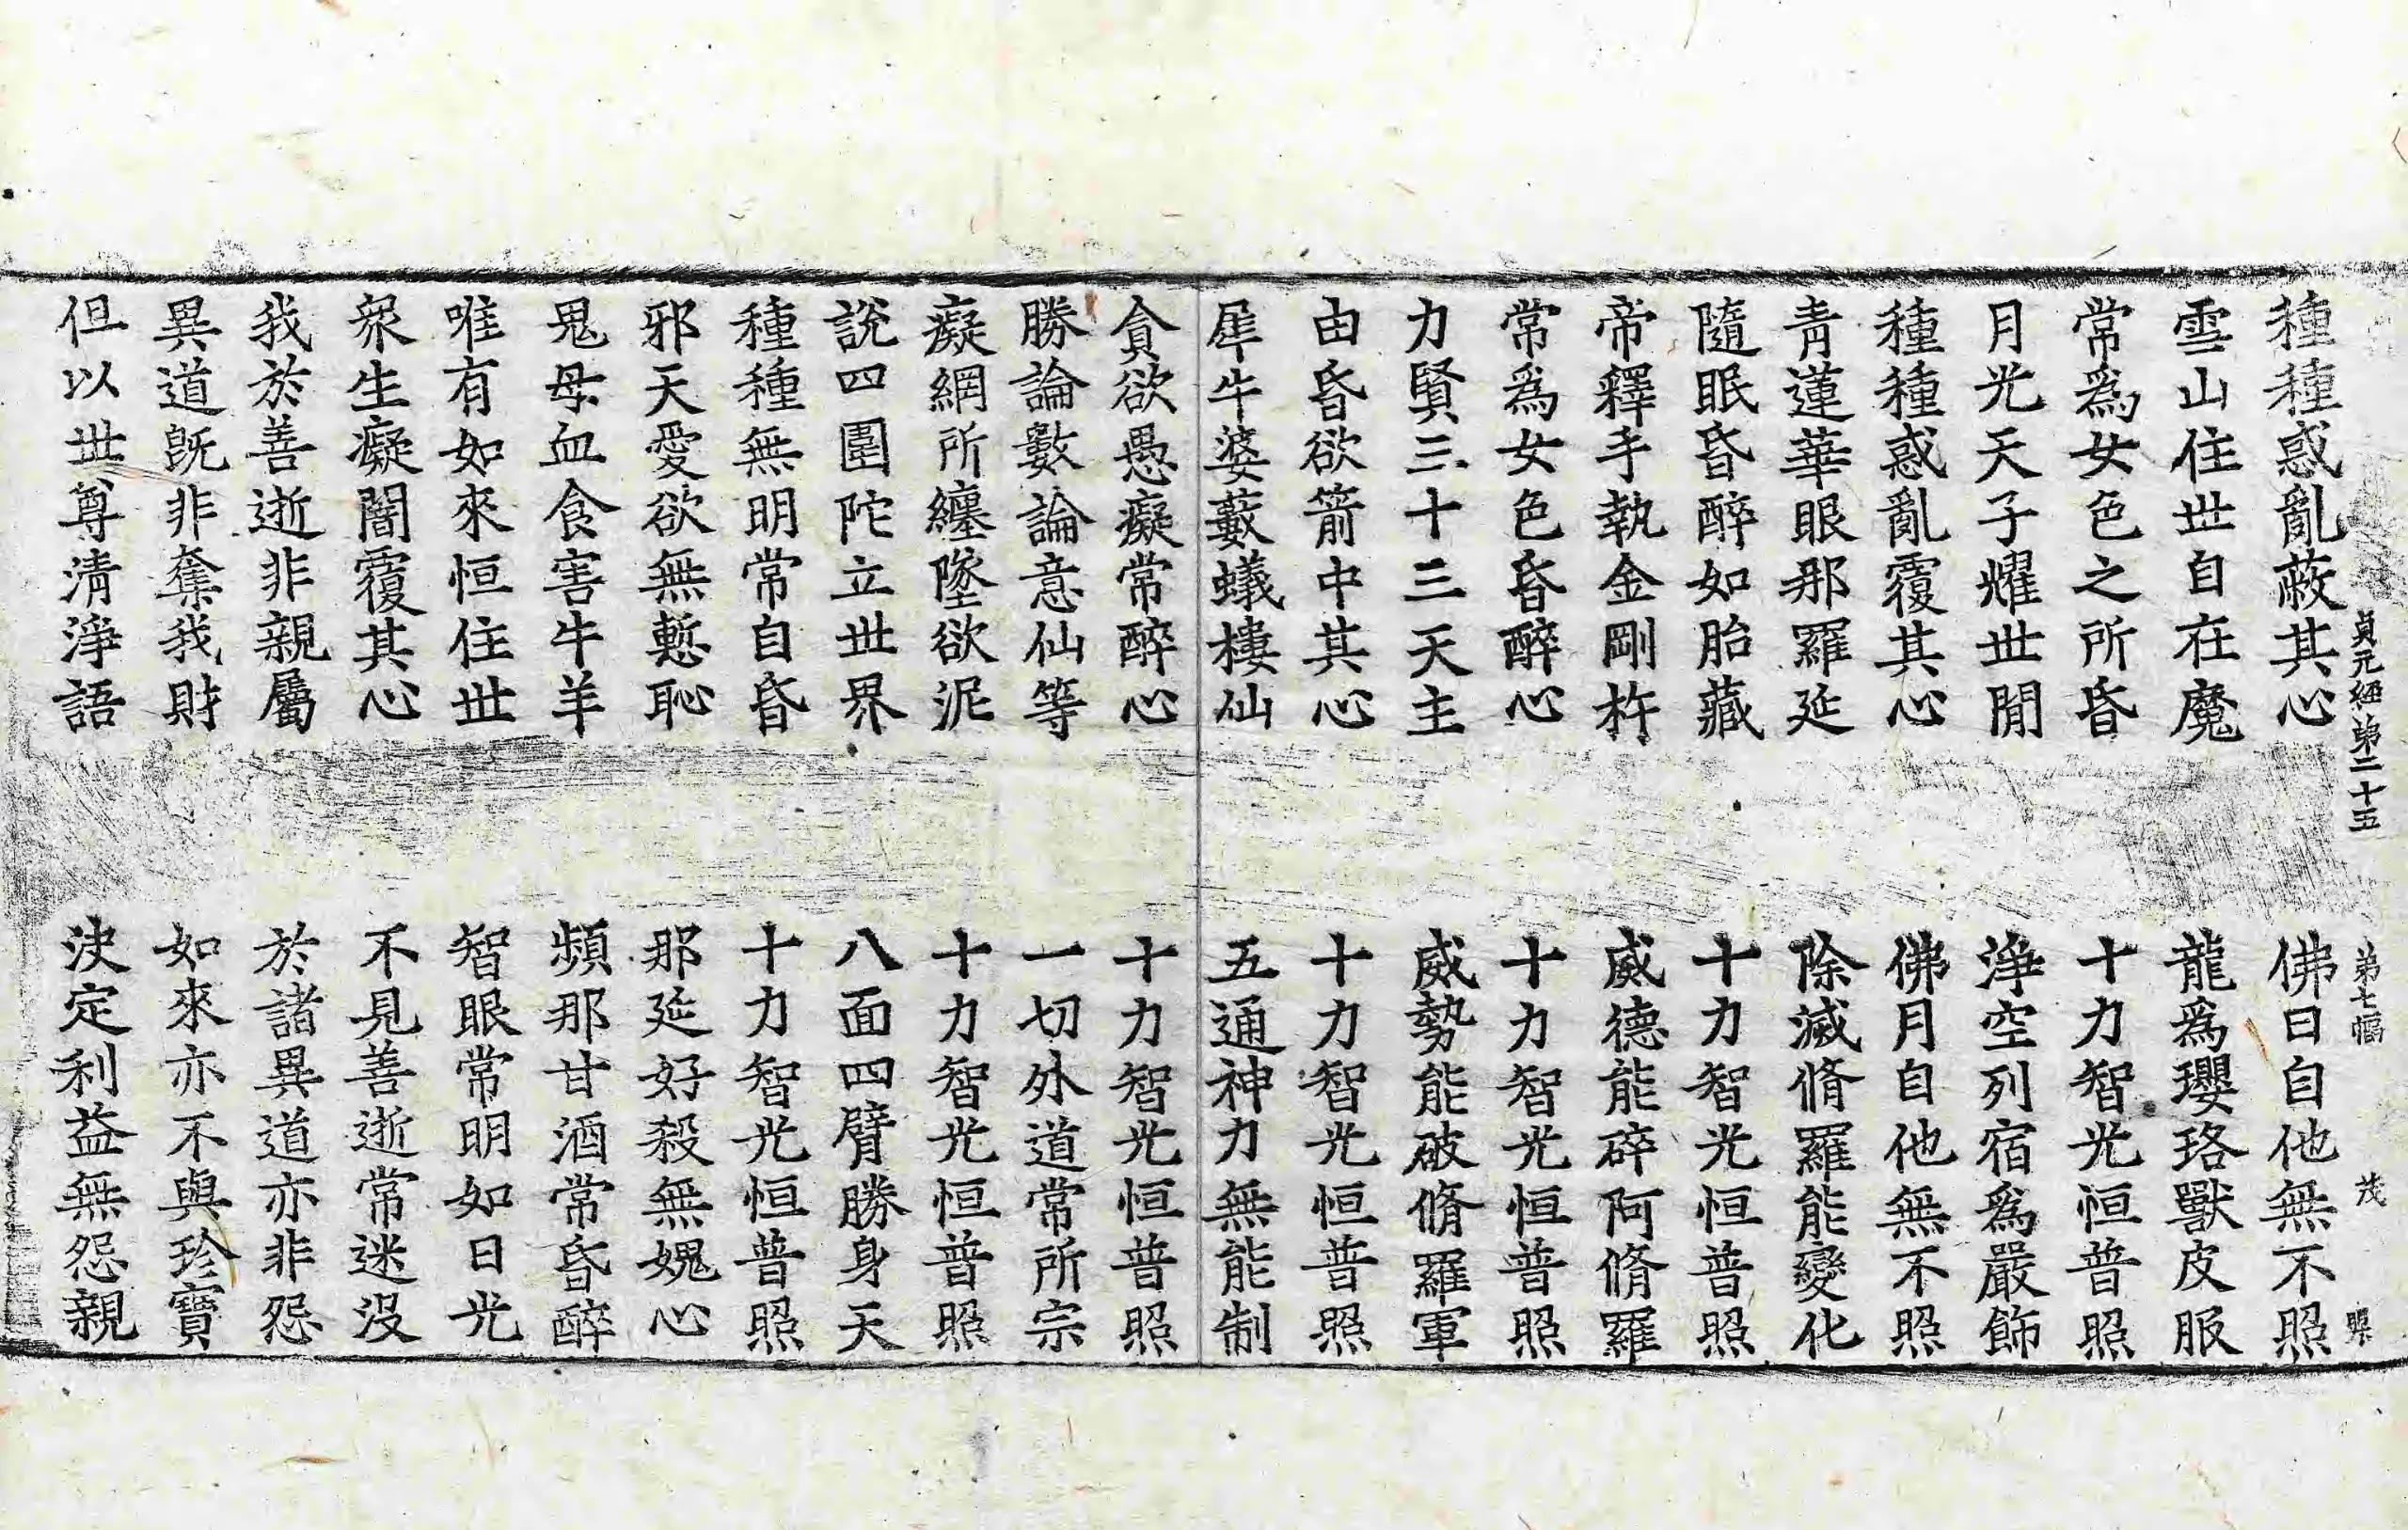 貞元經第二十五 第七幅 茂
種種惑亂蔽其心 佛日自他無不照
雪山住世自在魔 龍爲瓔珞獸皮服
常爲女色之所昏 十力智光恒普照
月光天子耀世閒 淨空列宿爲嚴飾
種種惑亂覆其心 佛月自他無不照
青蓮華眼那羅延 除滅脩羅能變化
隨眠昏醉如胎藏 十力智光恒普照
帝釋手執金剛杵 威德能碎阿脩羅
常爲女色昏醉心 十力智光恒普照
力賢三十三天主 威勢能破脩羅軍
由昏欲箭中其心 十力智光恒普照
犀牛婆藪蟻樓仙 五通神力無能制
貪欲愚癡常醉心 十力智光恒普照
勝論數論意仙等 一切外道常所宗
癡網所纏墜欲泥 十力智光恒普照
說四圍陀立世界 八面四臂勝身天
種種無明常自昏 十力智光恒普照
邪天愛欲無慙恥 那延好殺無媿心
鬼母血食害牛羊 頻那甘酒常昏醉
唯有如來恒住世 智眼常明如日光
衆生癡闇覆其心 不見善逝常迷沒
我於善逝非親屬 於諸異道亦非怨
異道旣非奪我財 如來亦不與珍寶
但以世尊清淨語 決定利益無怨親